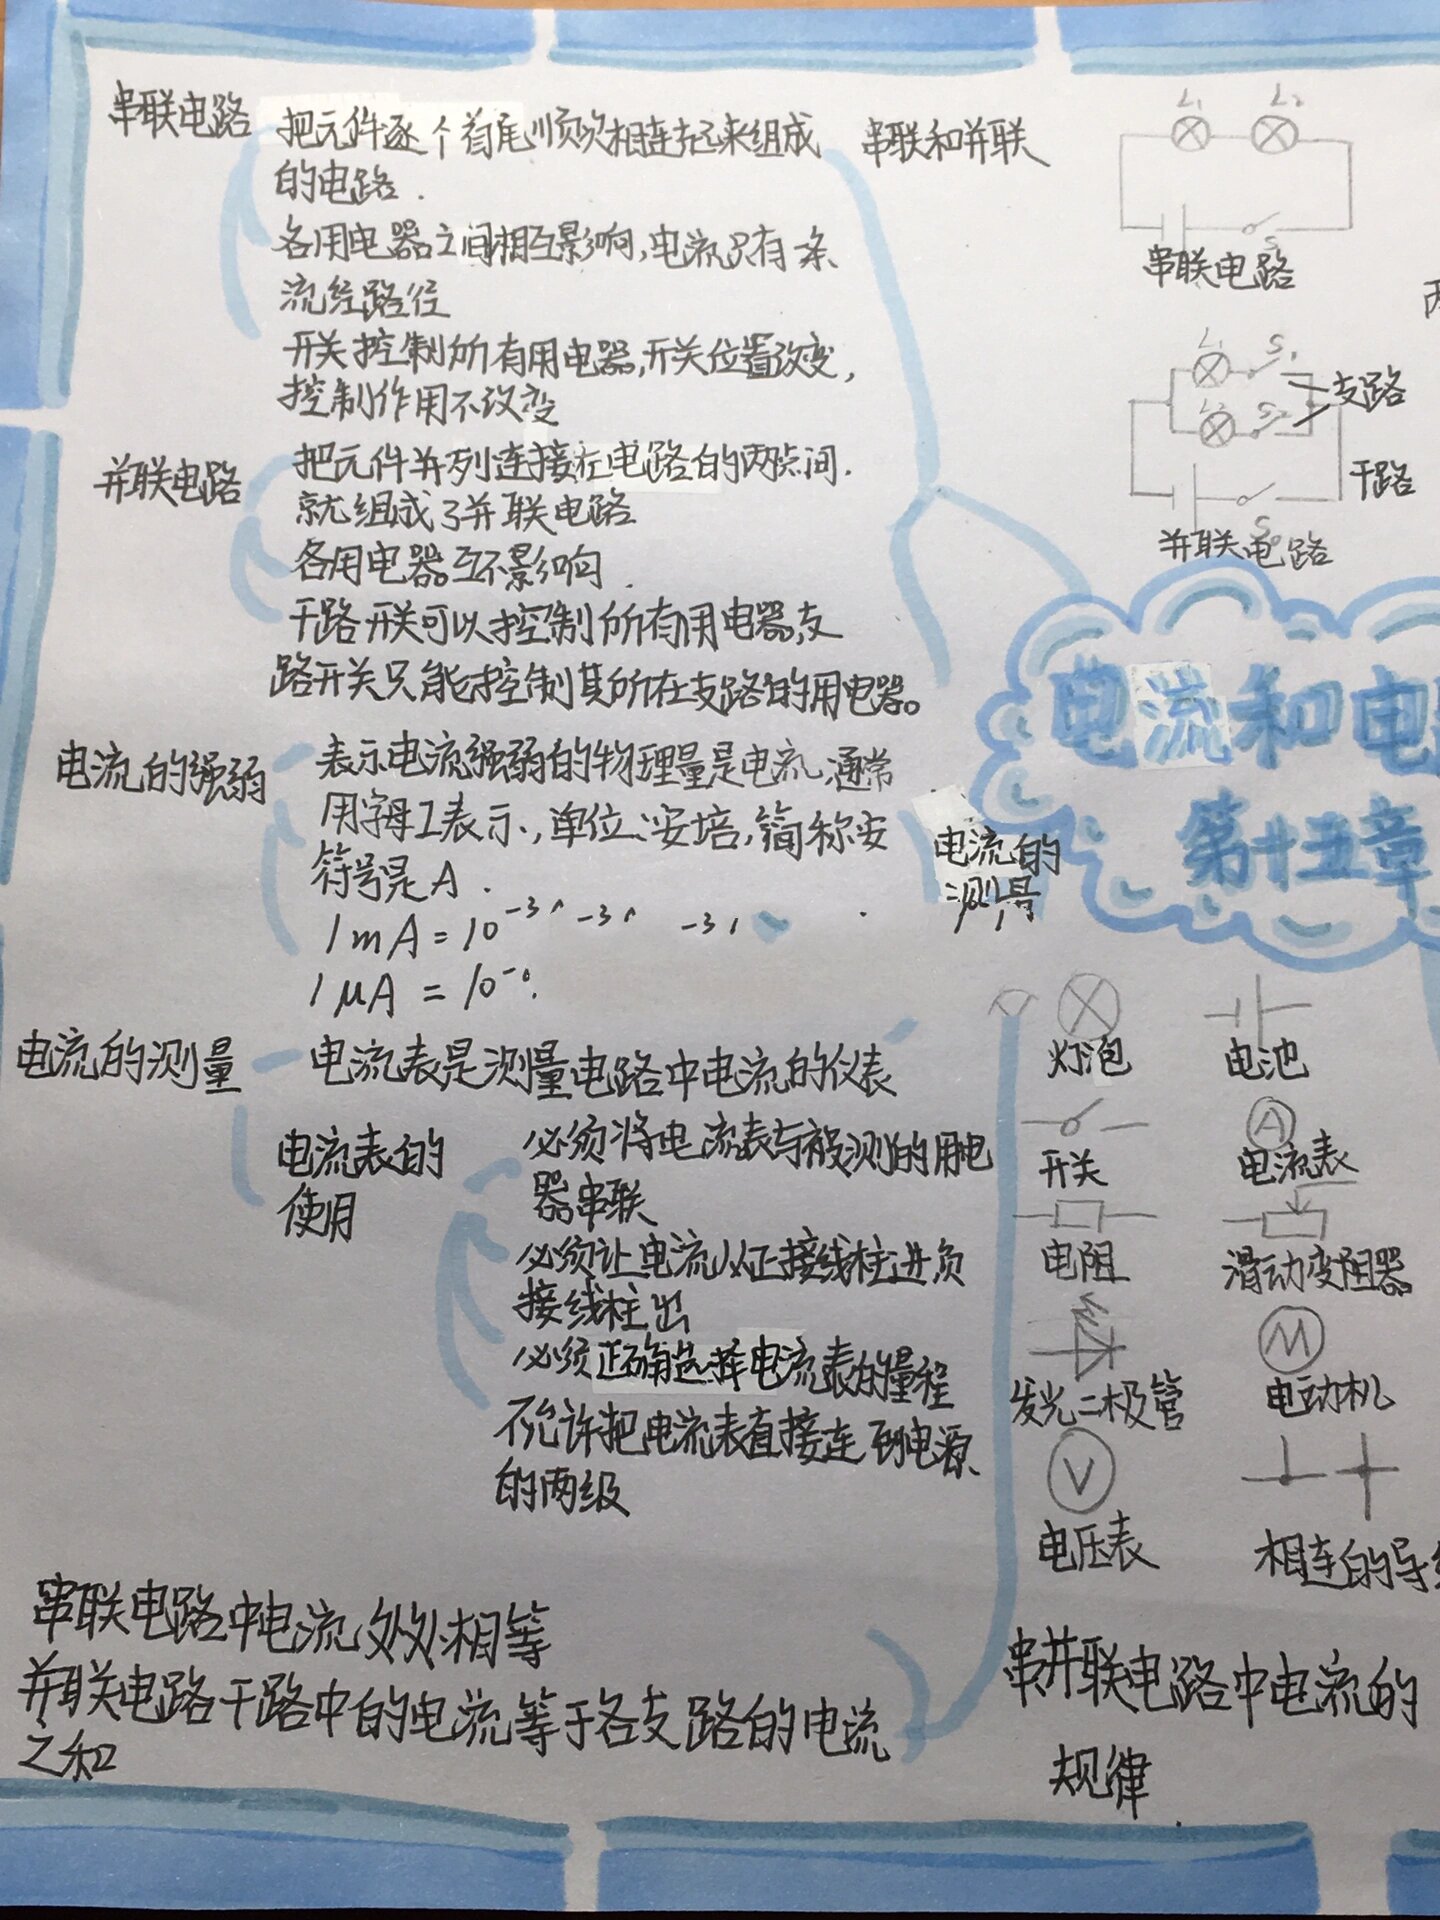 串联电路
把元件逐个首尾顺次相连起来组成
的电路.
各用电器之间相互影响,电流只有条
流经路径
开关控制所有用电器,开关位置改变,
控制作用不改变
并联电路
把元件并列连接在电路的两点间.
就组成了并联电路
各用电器互不影响.
干路开关可以控制所有用电器,支
路开关只能控制其所在支路的用电器。
串联和并联
L₁ L₂
S
串联电路
L₁ S₁
L₂ S₂
支路
干路
S
并联电路
电流和电
第十五章
电流的强弱
表示电流强弱的物理量是电流,通常
用字母I表示,单位、安培,简称安
符号是A.
1mA=10⁻³
1μA=10⁻
电流的
测量
电流的测量
电流表是测量电路中电流的仪表
电流表的
使用
必须将电流表与被测的用电
器串联
必须让电流从正接线柱进负
接线柱出
必须正确选择电流表的量程
不允许把电流表直接连到电源
的两级
灯泡
电池
开关
A
电流表
电阻
滑动变阻器
发光二极管
M
电动机
V
电压表
相连的导
串联电路中电流处处相等
并联电路干路中的电流等于各支路的电流
之和
串并联电路中电流的
规律